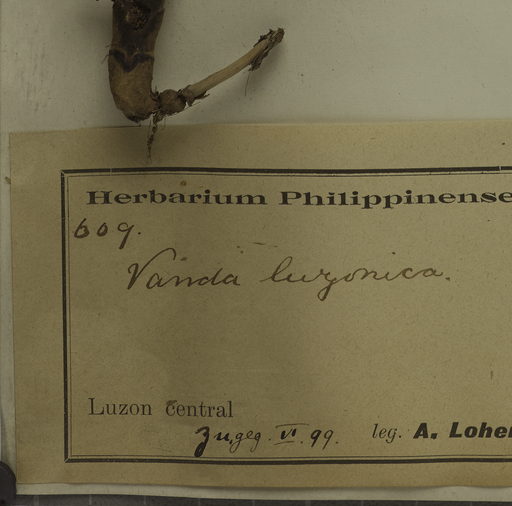 Herbarium Philippinense
609.
Vanda luzonica.
Luzon central
Zugeg. VI. 99. leg. A. Loher